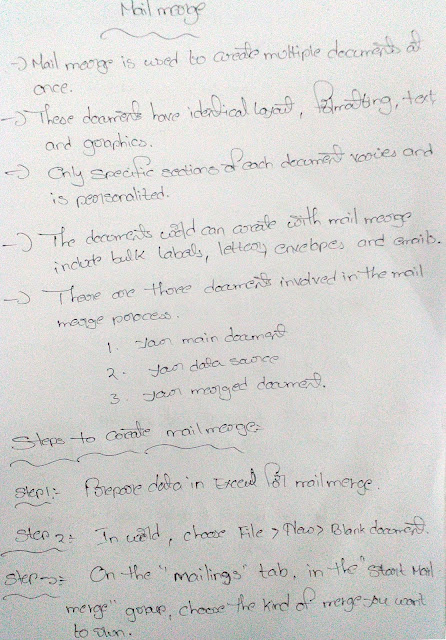 Mail merge
→ Mail merge is used to create multiple documents at
once.
→ These documents have identical layout, formatting, text,
and graphics.
→ Only specific sections of each document varies and
is personalized.
→ The documents word can create with mail merge
include bulk labels, letters, envelopes and emails.
→ There are three documents involved in the mail
merge process.
1. your main document
2. your data source
3. your merged document.
Steps to create mail merge:-
Step 1:- Prepare data in Excel for mail merge.
Step 2:- In word, choose File > New > Blank document.
Step-3:- On the "mailings" tab, in the "Start Mail
merge" group, choose the kind of merge you want
to run.